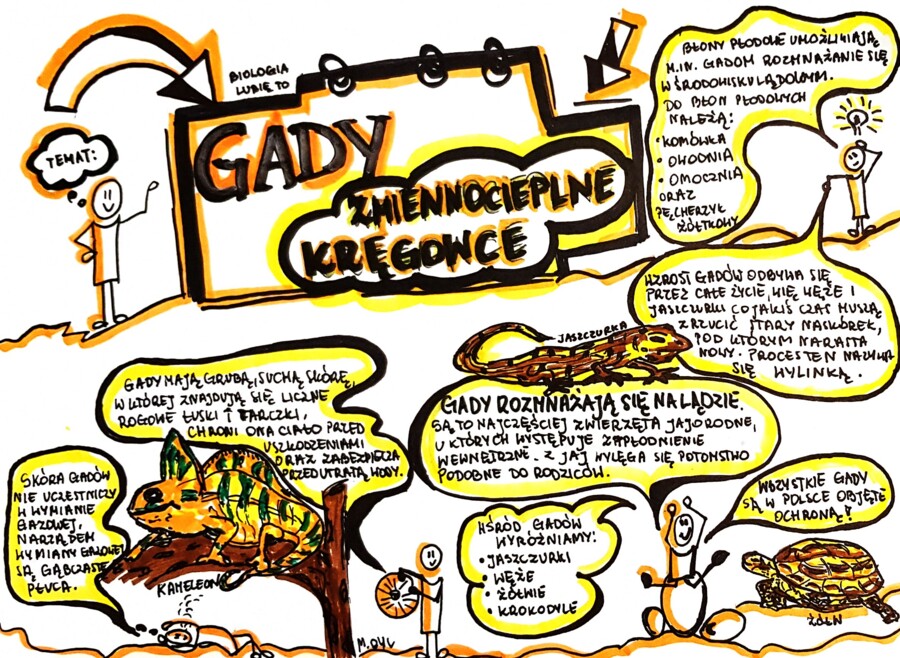 BIOLOGIA
LUBIĘ TO
TEMAT:
GADY
ZMIENNOCIEPLNE
KRĘGOWCE
BŁONY PŁODOWE UMOŻLIWIAJĄ
M.IN. GADOM ROZMNAŻANIE SIĘ
W ŚRODOWISKU LĄDOWYM.
DO BŁON PŁODOWYCH
NALEŻĄ:
• KOMÓWKA
• OWODNIA
• OMOCZNIA
ORAZ
PĘCHERZYK
ŻÓŁTKOWY
WZROST GADÓW ODBYWA SIĘ
PRZEZ CAŁE ŻYCIE, WIĘC WĘŻE I
JASZCZURKI CO JAKIŚ CZAS MUSZĄ
ZRZUCIĆ STARY NASKÓREK,
POD KTÓRYM NARASTA
NOWY. PROCES TEN NAZYWA
SIĘ WYLINKĄ.
JASZCZURKA
GADY MAJĄ GRUBĄ, SUCHĄ SKÓRĘ,
W KTÓREJ ZNAJDUJĄ SIĘ LICZNE
ROGOWE ŁUSKI I TARCZKI,
CHRONI ONA CIAŁO PRZED
USZKODZENIAMI
ORAZ ZABEZPIECZA
PRZED UTRATĄ WODY.
GADY ROZMNAŻAJĄ SIĘ NA LĄDZIE.
SĄ TO NAJCZĘŚCIEJ ZWIERZĘTA JAJORODNE,
U KTÓRYCH WYSTĘPUJE ZAPŁODNIENIE
WEWNĘTRZNE. Z JAJ WYLĘGA SIĘ POTOMSTWO
PODOBNE DO RODZICÓW.
SKÓRA GADÓW
NIE UCZESTNICZY
W WYMIANIE
GAZOWEJ,
NARZĄDEM
WYMIANY GAZOWEJ
SĄ GĄBCZASTE
PŁUCA.
KAMELEON
WŚRÓD GADÓW
WYRÓŻNIAMY:
• JASZCZURKI
• WĘŻE
• ŻÓŁWIE
• KROKODYLE
WSZYSTKIE GADY
SĄ W POLSCE OBJĘTE
OCHRONĄ!
ŻÓŁW
M. DYL